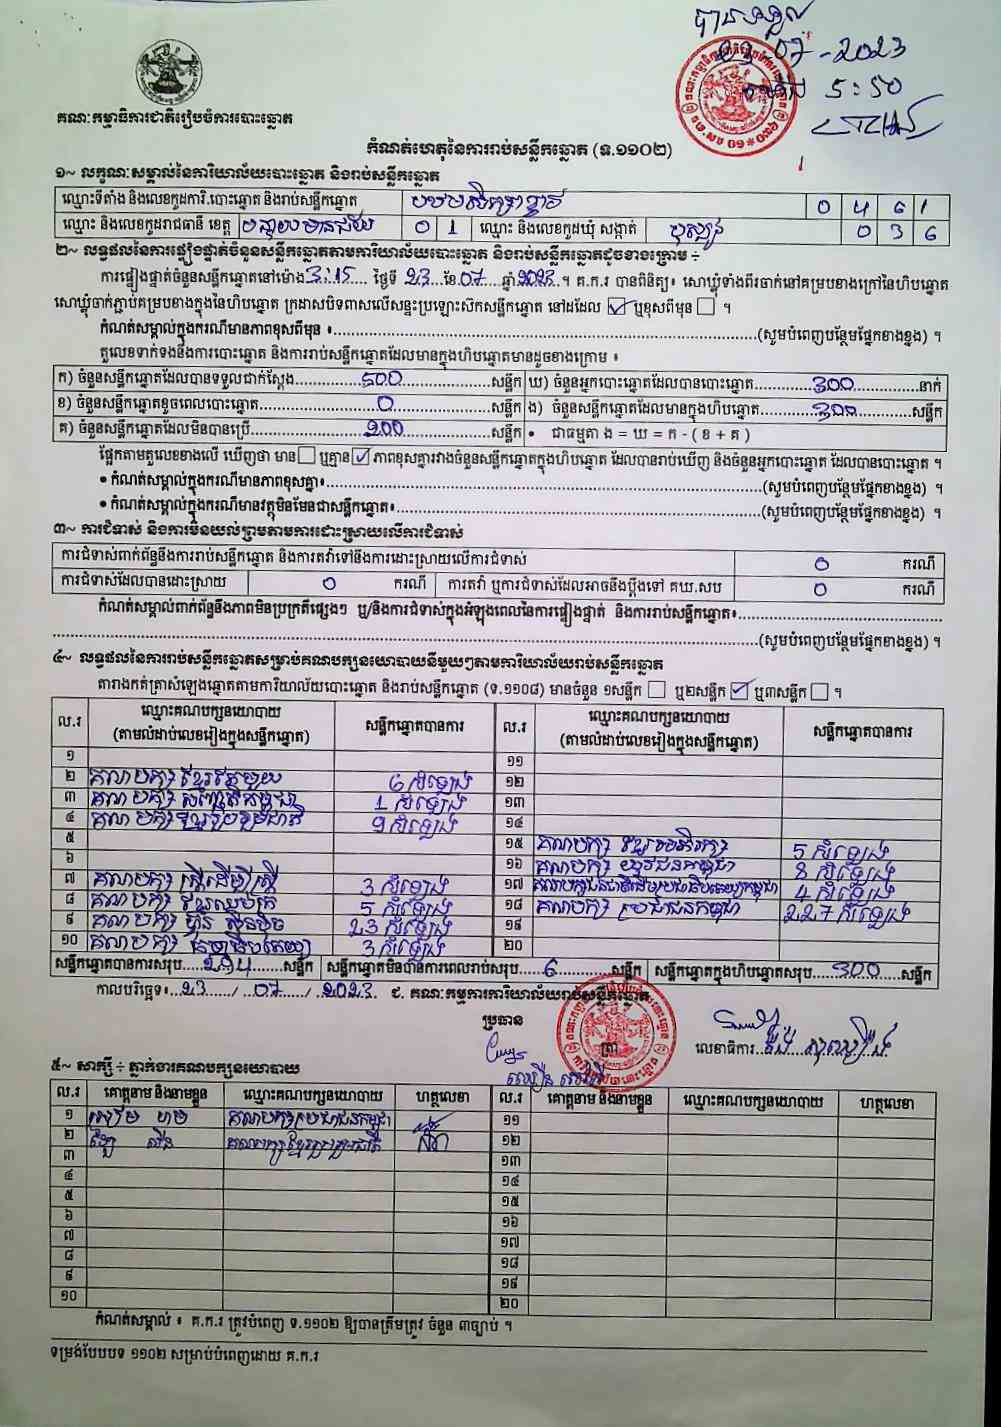 បានទទួល
23 07 - 2023
ម៉ោង 5:50
គណៈកម្មាធិការជាតិរៀបចំការបោះឆ្នោត
កំណត់ហេតុនៃការរាប់សន្លឹកឆ្នោត (ទ.១១០២)
១~ លក្ខណៈសម្គាល់នៃការិយាល័យបោះឆ្នោត និងរាប់សន្លឹកឆ្នោត
ឈ្មោះទីតាំង និងលេខកូដការិ.បោះឆ្នោត និងរាប់សន្លឹកឆ្នោត 0 4 6 1
ឈ្មោះ និងលេខកូដរាជធានី ខេត្ត បន្ទាយមានជ័យ 0 1 ឈ្មោះ និងលេខកូដឃុំ សង្កាត់ 0 3 6
២~ លទ្ធផលនៃការផ្ទៀងផ្ទាត់ចំនួនសន្លឹកឆ្នោតតាមការិយាល័យបោះឆ្នោត និងរាប់សន្លឹកឆ្នោតដូចខាងក្រោម ÷
ការផ្ទៀងផ្ទាត់ចំនួនសន្លឹកឆ្នោតនៅម៉ោង 3:15 ថ្ងៃទី 23 ខែ 07 ឆ្នាំ 2023 ។ គ.ក.រ បានពិនិត្យ៖ សោឃ្លុំទាំងពីរចាក់នៅគម្របខាងក្រៅនៃហិបឆ្នោត
សោឃ្លុំចាក់ភ្ជាប់គម្របខាងក្នុងនៃហិបឆ្នោត ក្រដាសបិទពាសលើសន្ទះប្រឡោះស៊កសន្លឹកឆ្នោត នៅដដែល ☑ ឬខុសពីមុន ☐ ។
កំណត់សម្គាល់ក្នុងករណីមានភាពខុសពីមុន ៖ (សូមបំពេញបន្ថែមផ្នែកខាងខ្នង) ។
តួលេខទាក់ទងនឹងការបោះឆ្នោត និងការរាប់សន្លឹកឆ្នោតដែលមានក្នុងហិបឆ្នោតមានដូចខាងក្រោម ៖
ក) ចំនួនសន្លឹកឆ្នោតដែលបានទទួលជាក់ស្តែង 500 សន្លឹក ឃ) ចំនួនអ្នកបោះឆ្នោតដែលបានបោះឆ្នោត 300 នាក់
ខ) ចំនួនសន្លឹកឆ្នោតខូចពេលបោះឆ្នោត 0 សន្លឹក ង) ចំនួនសន្លឹកឆ្នោតដែលមានក្នុងហិបឆ្នោត 300 សន្លឹក
គ) ចំនួនសន្លឹកឆ្នោតដែលមិនបានប្រើ 200 សន្លឹក • ជាធម្មតា ង = ឃ = ក - ( ខ + គ )
ផ្អែកតាមតួលេខខាងលើ ឃើញថា មាន ☐ ឬគ្មាន ☑ ភាពខុសគ្នារវាងចំនួនសន្លឹកឆ្នោតក្នុងហិបឆ្នោត ដែលបានរាប់ឃើញ និងចំនួនអ្នកបោះឆ្នោត ដែលបានបោះឆ្នោត ។
• កំណត់សម្គាល់ក្នុងករណីមានភាពខុសគ្នា៖ (សូមបំពេញបន្ថែមផ្នែកខាងខ្នង) ។
• កំណត់សម្គាល់ក្នុងករណីមានវត្ថុមិនមែនជាសន្លឹកឆ្នោត៖ (សូមបំពេញបន្ថែមផ្នែកខាងខ្នង) ។
៣~ ការជំទាស់ និងការមិនយល់ព្រមតាមការដោះស្រាយលើការជំទាស់
ការជំទាស់ពាក់ព័ន្ធនឹងការរាប់សន្លឹកឆ្នោត និងការតវ៉ាទៅនឹងការដោះស្រាយលើការជំទាស់ 0 ករណី
ការជំទាស់ដែលបានដោះស្រាយ 0 ករណី ការតវ៉ា ឬការជំទាស់ដែលអាចនឹងប្តឹងទៅ គឃ.សប 0 ករណី
កំណត់សម្គាល់ពាក់ព័ន្ធនឹងភាពមិនប្រក្រតីផ្សេងៗ ឬ/និងការជំទាស់ក្នុងអំឡុងពេលនៃការផ្ទៀងផ្ទាត់ និងការរាប់សន្លឹកឆ្នោត៖
(សូមបំពេញបន្ថែមផ្នែកខាងខ្នង) ។
៤~ លទ្ធផលនៃការរាប់សន្លឹកឆ្នោតសម្រាប់គណបក្សនយោបាយនីមួយៗតាមការិយាល័យរាប់សន្លឹកឆ្នោត
តារាងកត់ត្រាសំឡេងឆ្នោតតាមការិយាល័យបោះឆ្នោត និងរាប់សន្លឹកឆ្នោត (ទ.១១០៨) មានចំនួន ១សន្លឹក ☐ ឬ២សន្លឹក ☑ ឬ៣សន្លឹក ☐ ។
ល.រ ឈ្មោះគណបក្សនយោបាយ (តាមលំដាប់លេខរៀងក្នុងសន្លឹកឆ្នោត) សន្លឹកឆ្នោតបានការ ល.រ ឈ្មោះគណបក្សនយោបាយ (តាមលំដាប់លេខរៀងក្នុងសន្លឹកឆ្នោត) សន្លឹកឆ្នោតបានការ
១ ១១
២ គណបក្ស ខ្មែរតែមួយ 6 សំឡេង ១២
៣ គណបក្ស សញ្ជាតិកម្ពុជា 1 សំឡេង ១៣
៤ គណបក្ស ខ្មែររួបរួមជាតិ 9 សំឡេង ១៤
៥ ១៥ គណបក្ស ខ្មែរអភិរក្ស 5 សំឡេង
៦ ១៦ គណបក្ស យុវជនកម្ពុជា 8 សំឡេង
៧ គណបក្ស ស្ត្រីដើម្បីស្ត្រី 3 សំឡេង ១៧ គណបក្សជនជាតិដើមប្រជាធិបតេយ្យកម្ពុជា 4 សំឡេង
៨ គណបក្ស ខ្មែរឈប់ក្រ 5 សំឡេង ១៨ គណបក្ស ប្រជាជនកម្ពុជា 227 សំឡេង
៩ គណបក្ស ហ្វ៊ុនស៊ិនប៉ិច 23 សំឡេង ១៩
១០ គណបក្ស 3 សំឡេង ២០
សន្លឹកឆ្នោតបានការសរុប 294 សន្លឹក សន្លឹកឆ្នោតមិនបានការពេលរាប់សរុប 6 សន្លឹក សន្លឹកឆ្នោតក្នុងហិបឆ្នោតសរុប 300 សន្លឹក
កាលបរិច្ឆេទ៖ 23 / 07 / 2023 ជ. គណៈកម្មការការិយាល័យរាប់សន្លឹកឆ្នោត
ប្រធាន ត្រា លេខាធិការ
៥~ សាក្សី ÷ ភ្នាក់ងារគណបក្សនយោបាយ
ល.រ គោត្តនាម និងនាមខ្លួន ឈ្មោះគណបក្សនយោបាយ ហត្ថលេខា ល.រ គោត្តនាម និងនាមខ្លួន ឈ្មោះគណបក្សនយោបាយ ហត្ថលេខា
១ គណបក្សប្រជាជនកម្ពុជា ១១
២ គណបក្សខ្មែររួបរួមជាតិ ១២
៣ ១៣
៤ ១៤
៥ ១៥
៦ ១៦
៧ ១៧
៨ ១៨
៩ ១៩
១០ ២០
កំណត់សម្គាល់ ៖ គ.ក.រ ត្រូវបំពេញ ទ.១១០២ ឱ្យបានត្រឹមត្រូវ ចំនួន ៣ច្បាប់ ។
ទម្រង់បែបបទ ១១០២ សម្រាប់បំពេញដោយ គ.ក.រ